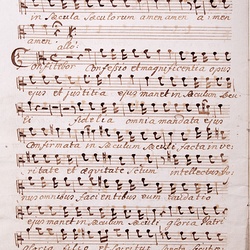 in saecula saeculorum amen amen a imen
amen. allo:
Confitebor Confessio et magnificentia opus
ejus et justitia ejus manet in saeculum
fidelia omnia mandata ejus
Confirmata in saeculum saeculi, facta in ve:
ritate et aequitate, intellectus
omnibus facientibus eum laudatio
ejus manet in saeculum saeculi, gloria Patri
gloria filio